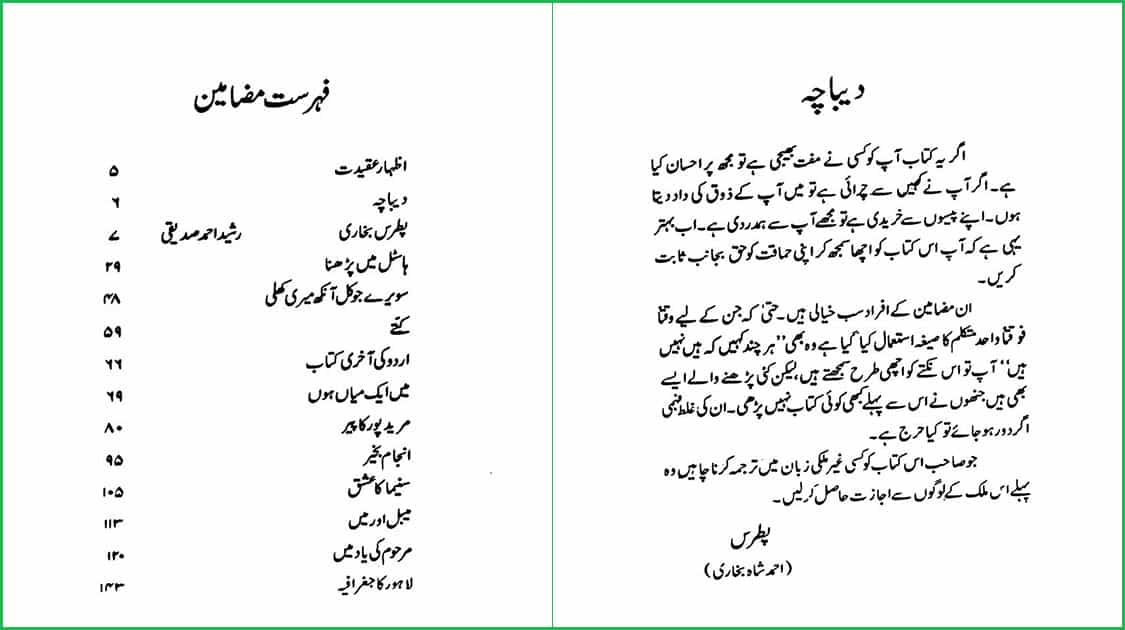 دیباچہ
اگر یہ کتاب آپ کو کسی نے مفت بھیجی ہے تو مجھ پر احسان کیا
ہے۔ اگر آپ نے کہیں سے چرائی ہے تو میں آپ کے ذوق کی داد دیتا
ہوں۔ اپنے پیسوں سے خریدی ہے تو مجھے آپ سے ہمدردی ہے۔ اب بہتر
یہی ہے کہ آپ اس کتاب کو اچھا سمجھ کر اپنی حماقت کو حق بجانب ثابت
کریں۔
ان مضامین کے افراد سب خیالی ہیں۔ حتیٰ کہ جن کے لیے وقتاً
فوقتاً واحد متکلم کا صیغہ استعمال کیا گیا ہے وہ بھی ”ہر چند کہیں کہ ہیں نہیں
ہیں“ آپ تو اس نکتے کو اچھی طرح سمجھتے ہیں، لیکن کئی پڑھنے والے ایسے
بھی ہیں جنھوں نے اس سے پہلے کبھی کوئی کتاب نہیں پڑھی۔ ان کی غلط فہمی
اگر دور ہو جائے تو کیا حرج ہے۔
جو صاحب اس کتاب کو کسی غیر ملکی زبان میں ترجمہ کرنا چاہیں وہ
پہلے اس ملک کے لوگوں سے اجازت حاصل کر لیں۔
پطرس
(احمد شاہ بخاری)
فہرست مضامین
اظہار عقیدت ۵
دیباچہ ۶
پطرس بخاری رشید احمد صدیقی ۷
ہاسٹل میں پڑھنا ۲۹
سویرے جو کل آنکھ میری کھلی ۴۸
کتے ۵۹
اردو کی آخری کتاب ۶۶
میں ایک میاں ہوں ۶۹
مرید پور کا پیر ۸۰
انجام بخیر ۹۵
سنیما کا عشق ۱۰۵
میبل اور میں ۱۱۳
مرحوم کی یاد میں ۱۲۰
لاہور کا جغرافیہ ۱۴۳